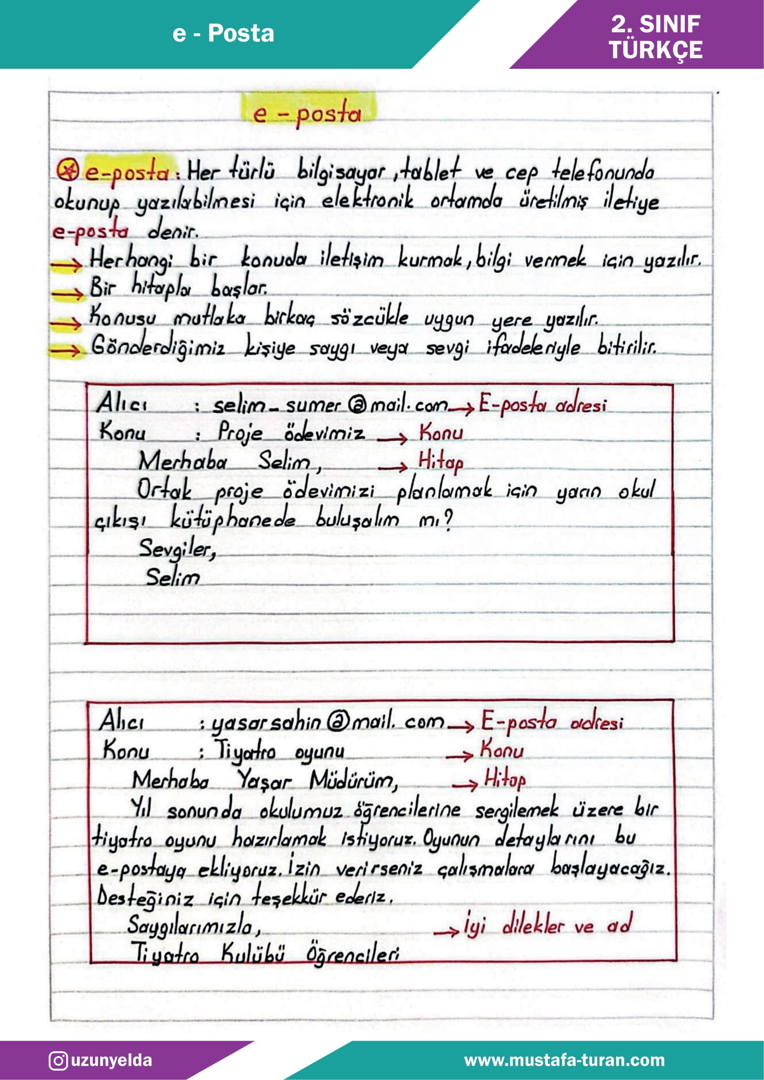 e - Posta
2. SINIF
TÜRKÇE
e - posta
e-posta: Her türlü bilgisayar, tablet ve cep telefonunda
okunup yazılabilmesi için elektronik ortamda üretilmiş iletiye
e-posta denir.
→ Herhangi bir konuda iletişim kurmak, bilgi vermek için yazılır.
→ Bir hitapla başlar.
→ Konusu mutlaka birkaç sözcükle uygun yere yazılır.
→ Gönderdiğimiz kişiye saygı veya sevgi ifadeleriyle bitirilir.
Alıcı : selim_sumer@mail.com → E-posta adresi
Konu : Proje ödevimiz → Konu
Merhaba Selim, → Hitap
Ortak proje ödevimizi planlamak için yarın okul
çıkışı kütüphanede buluşalım mı?
Sevgiler,
Selim
Alıcı : yasarsahin@mail.com → E-posta adresi
Konu : Tiyatro oyunu → Konu
Merhaba Yaşar Müdürüm, → Hitap
Yıl sonunda okulumuz öğrencilerine sergilemek üzere bir
tiyatro oyunu hazırlamak istiyoruz. Oyunun detaylarını bu
e-postaya ekliyoruz. İzin verirseniz çalışmalara başlayacağız.
Desteğiniz için teşekkür ederiz.
Saygılarımızla, → İyi dilekler ve ad
Tiyatro Kulübü Öğrencileri
uzunyelda
www.mustafa-turan.com